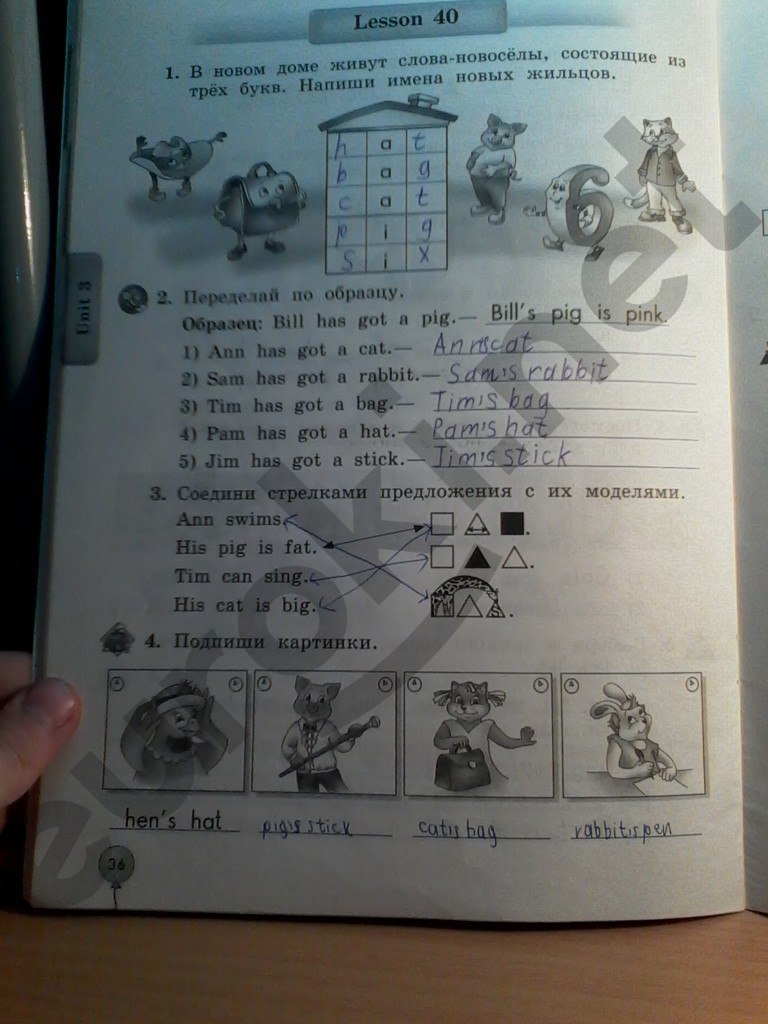 Lesson 40
1. В новом доме живут слова-новосёлы, состоящие из
трёх букв. Напиши имена новых жильцов.
h a t
b a g
c a t
p i g
s i x
6
Unit 3
2. Переделай по образцу.
Образец: Bill has got a pig.— Bill's pig is pink.
1) Ann has got a cat.— Ann's cat
2) Sam has got a rabbit.— Sam's rabbit
3) Tim has got a bag.— Tim's bag
4) Pam has got a hat.— Pam's hat
5) Jim has got a stick.— Jim's stick
3. Соедини стрелками предложения с их моделями.
Ann swims.
His pig is fat.
Tim can sing.
His cat is big.
4. Подпиши картинки.
hen's hat pig's stick cat's bag rabbit's pen
36
euroki.net